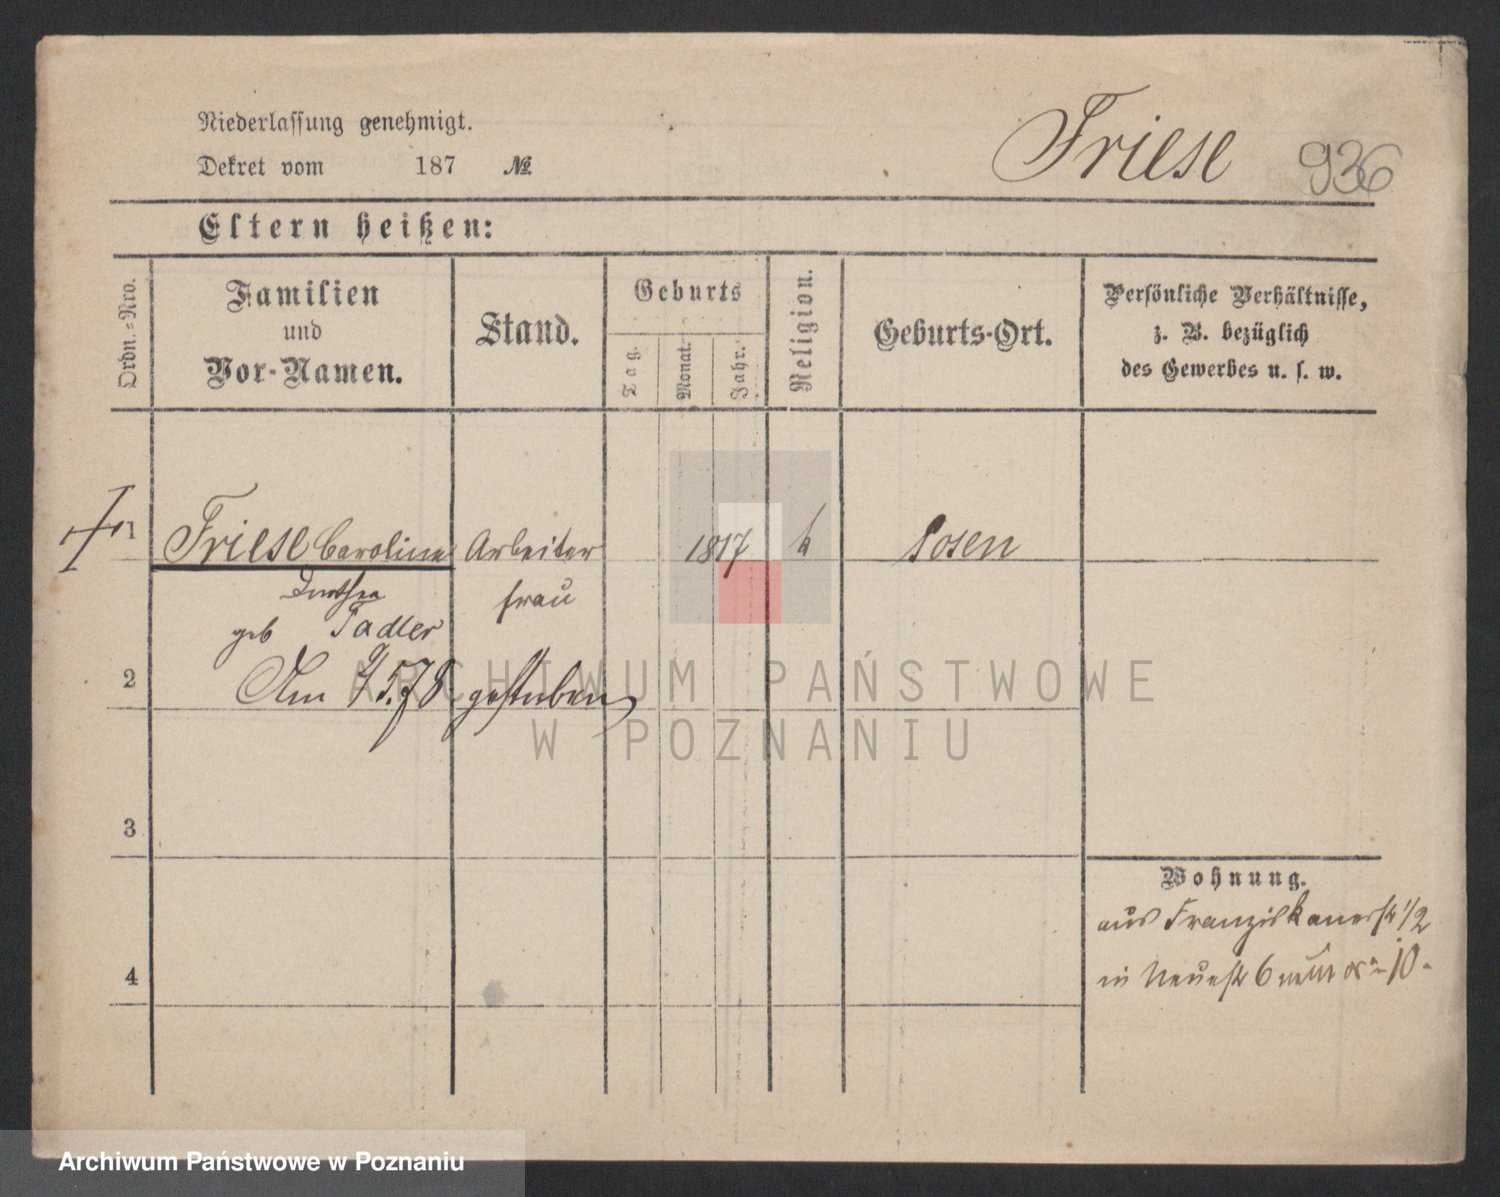 Niederlassung genehmigt.
Dekret vom 187 №
Friese 936
Eltern heißen:
Ordn.-Nro.
Familien und Vor-Namen.
Stand.
Geburts
Tag.
Monat.
Jahr.
Religion.
Geburts-Ort.
Persönliche Verhältnisse,
z. B. bezüglich
des Gewerbes u. s. w.
1 Friese Caroline Arbeiter 1817 k Posen
Dorothea frau
geb Tadler
2 Am 9/5.78 gestorben
3
4
Wohnung.
aus Franziskanerstr 1/2
in Neuestr 6
10
ARCHIWUM PAŃSTWOWE
W POZNANIU
Archiwum Państwowe w Poznaniu